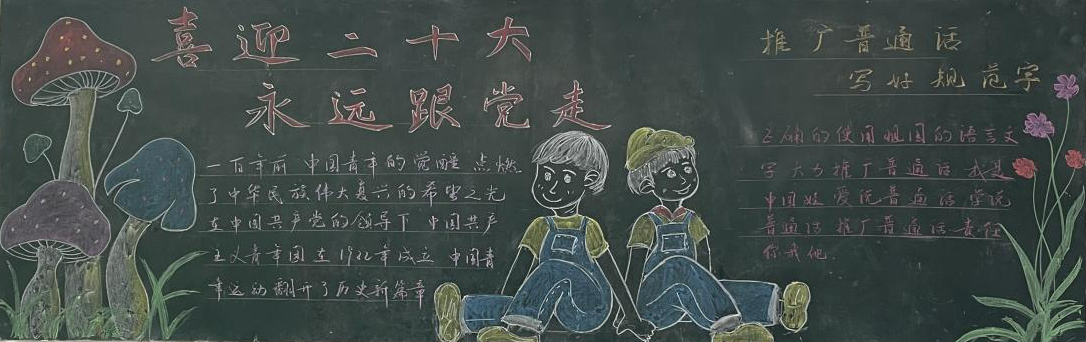 喜迎二十大
永远跟党走
一百年前 中国青年的觉醒 点燃
了中华民族伟大复兴的希望之光
在中国共产党的领导下 中国共产
主义青年团在1922年成立 中国青
年运动翻开了历史新篇章
推广普通话
写好规范字
正确的使用祖国的语言文
字 大力推广普通话 我是
中国娃 爱说普通话 学说
普通话 推广普通话 责任
你我他